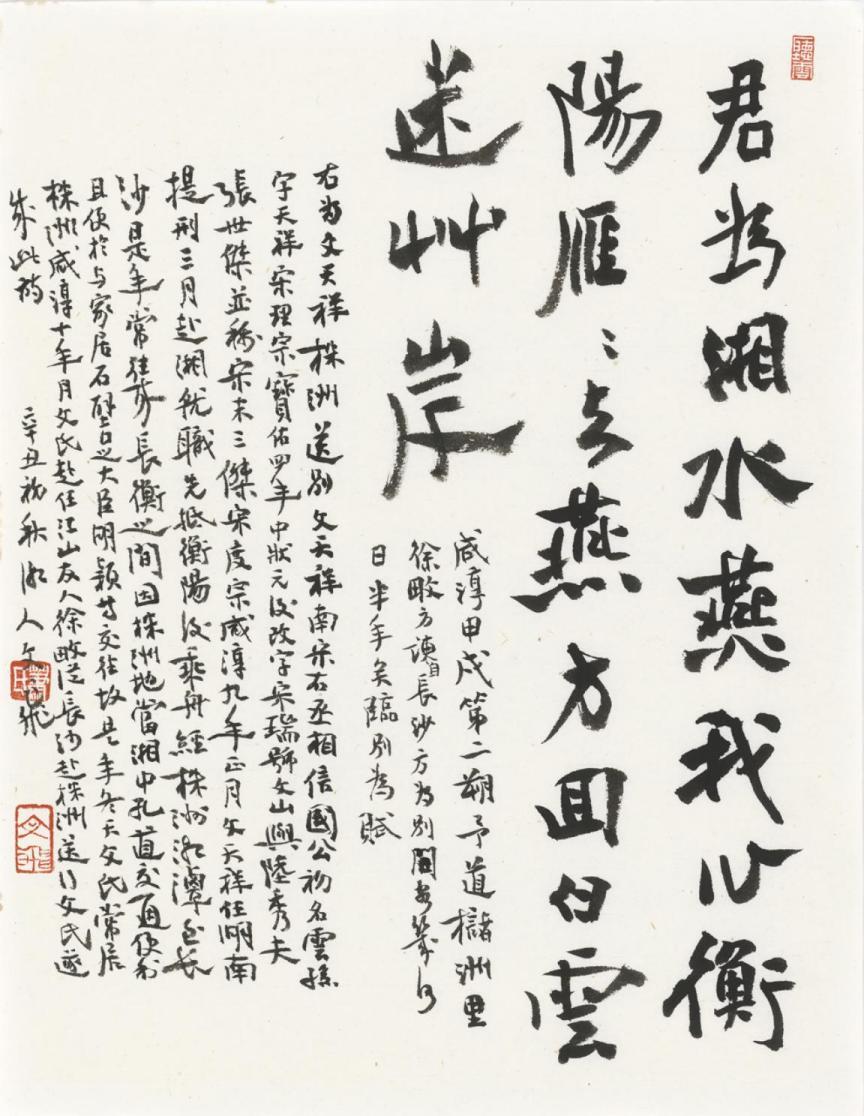 君为湘水燕我心衡
陽雁〻去燕方囬白雲
迷艸岸
咸淳甲戌第二朔予道櫧洲里
徐畋方讀自長沙方为別闊
日半年矣臨別為賦
右为文天祥株洲送别文天祥南宋右丞相信國公初名雲孫
字天祥宋理宗寳佑四年中狀元後改字宋瑞號文山與陸秀夫
張世傑並称宋末三傑宋度宗咸淳九年正月文天祥任湖南
提刑三月赴湘就職先抵衡陽後乘舟經株洲湘潭至長
沙是年常往來長衡之間因株洲地當湘中孔道交通便利
且便於与家居石壁之大臣交往故是年冬天文氏常居
株洲咸淳十年月文氏赴任江山友人徐畋從長沙赴株洲送行文氏遂
成此詩
辛丑初秋湘人文